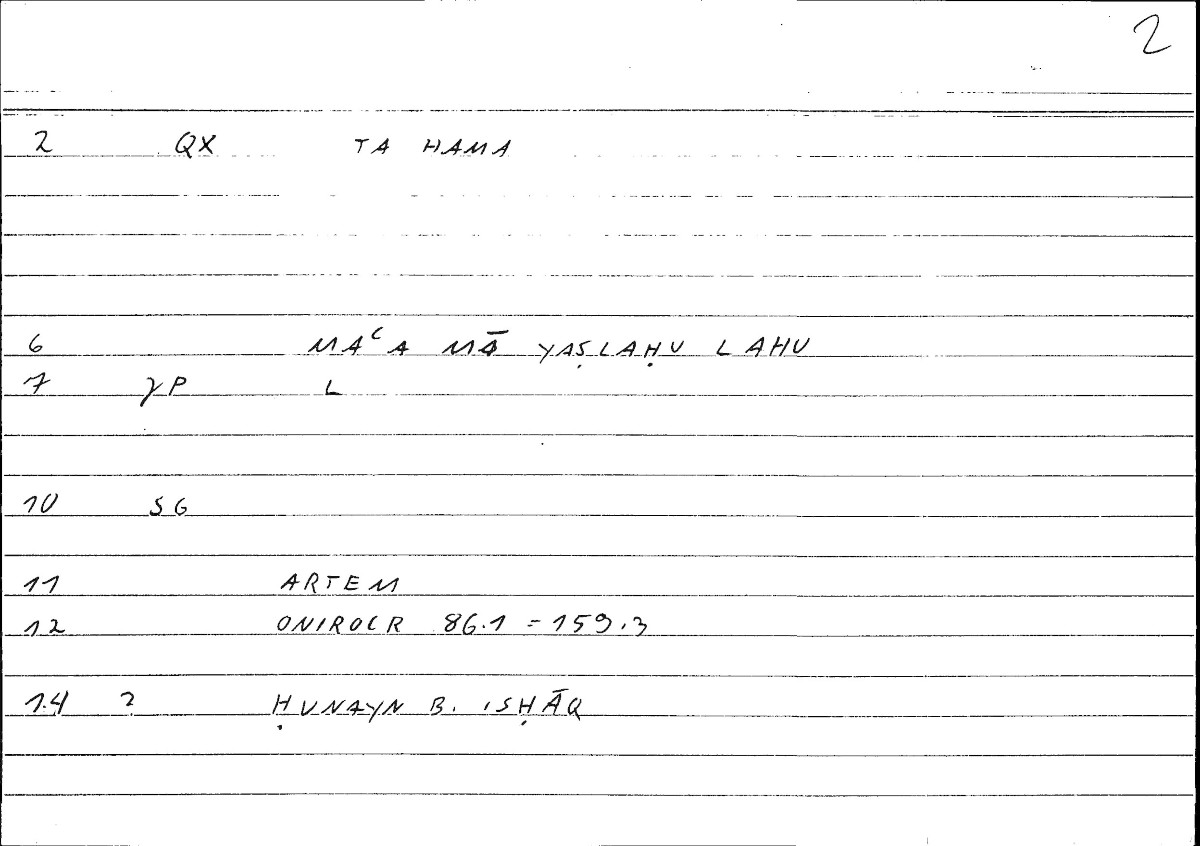 2
2 QX TA HAMA
6 MAʿA MĀ YAṢLAḤU LAHU
7 γP L
10 SG
11 ARTEM
12 ONIROCR 86.1 = 159.3
14 2 ḤUNAYN B. ISḤĀQ